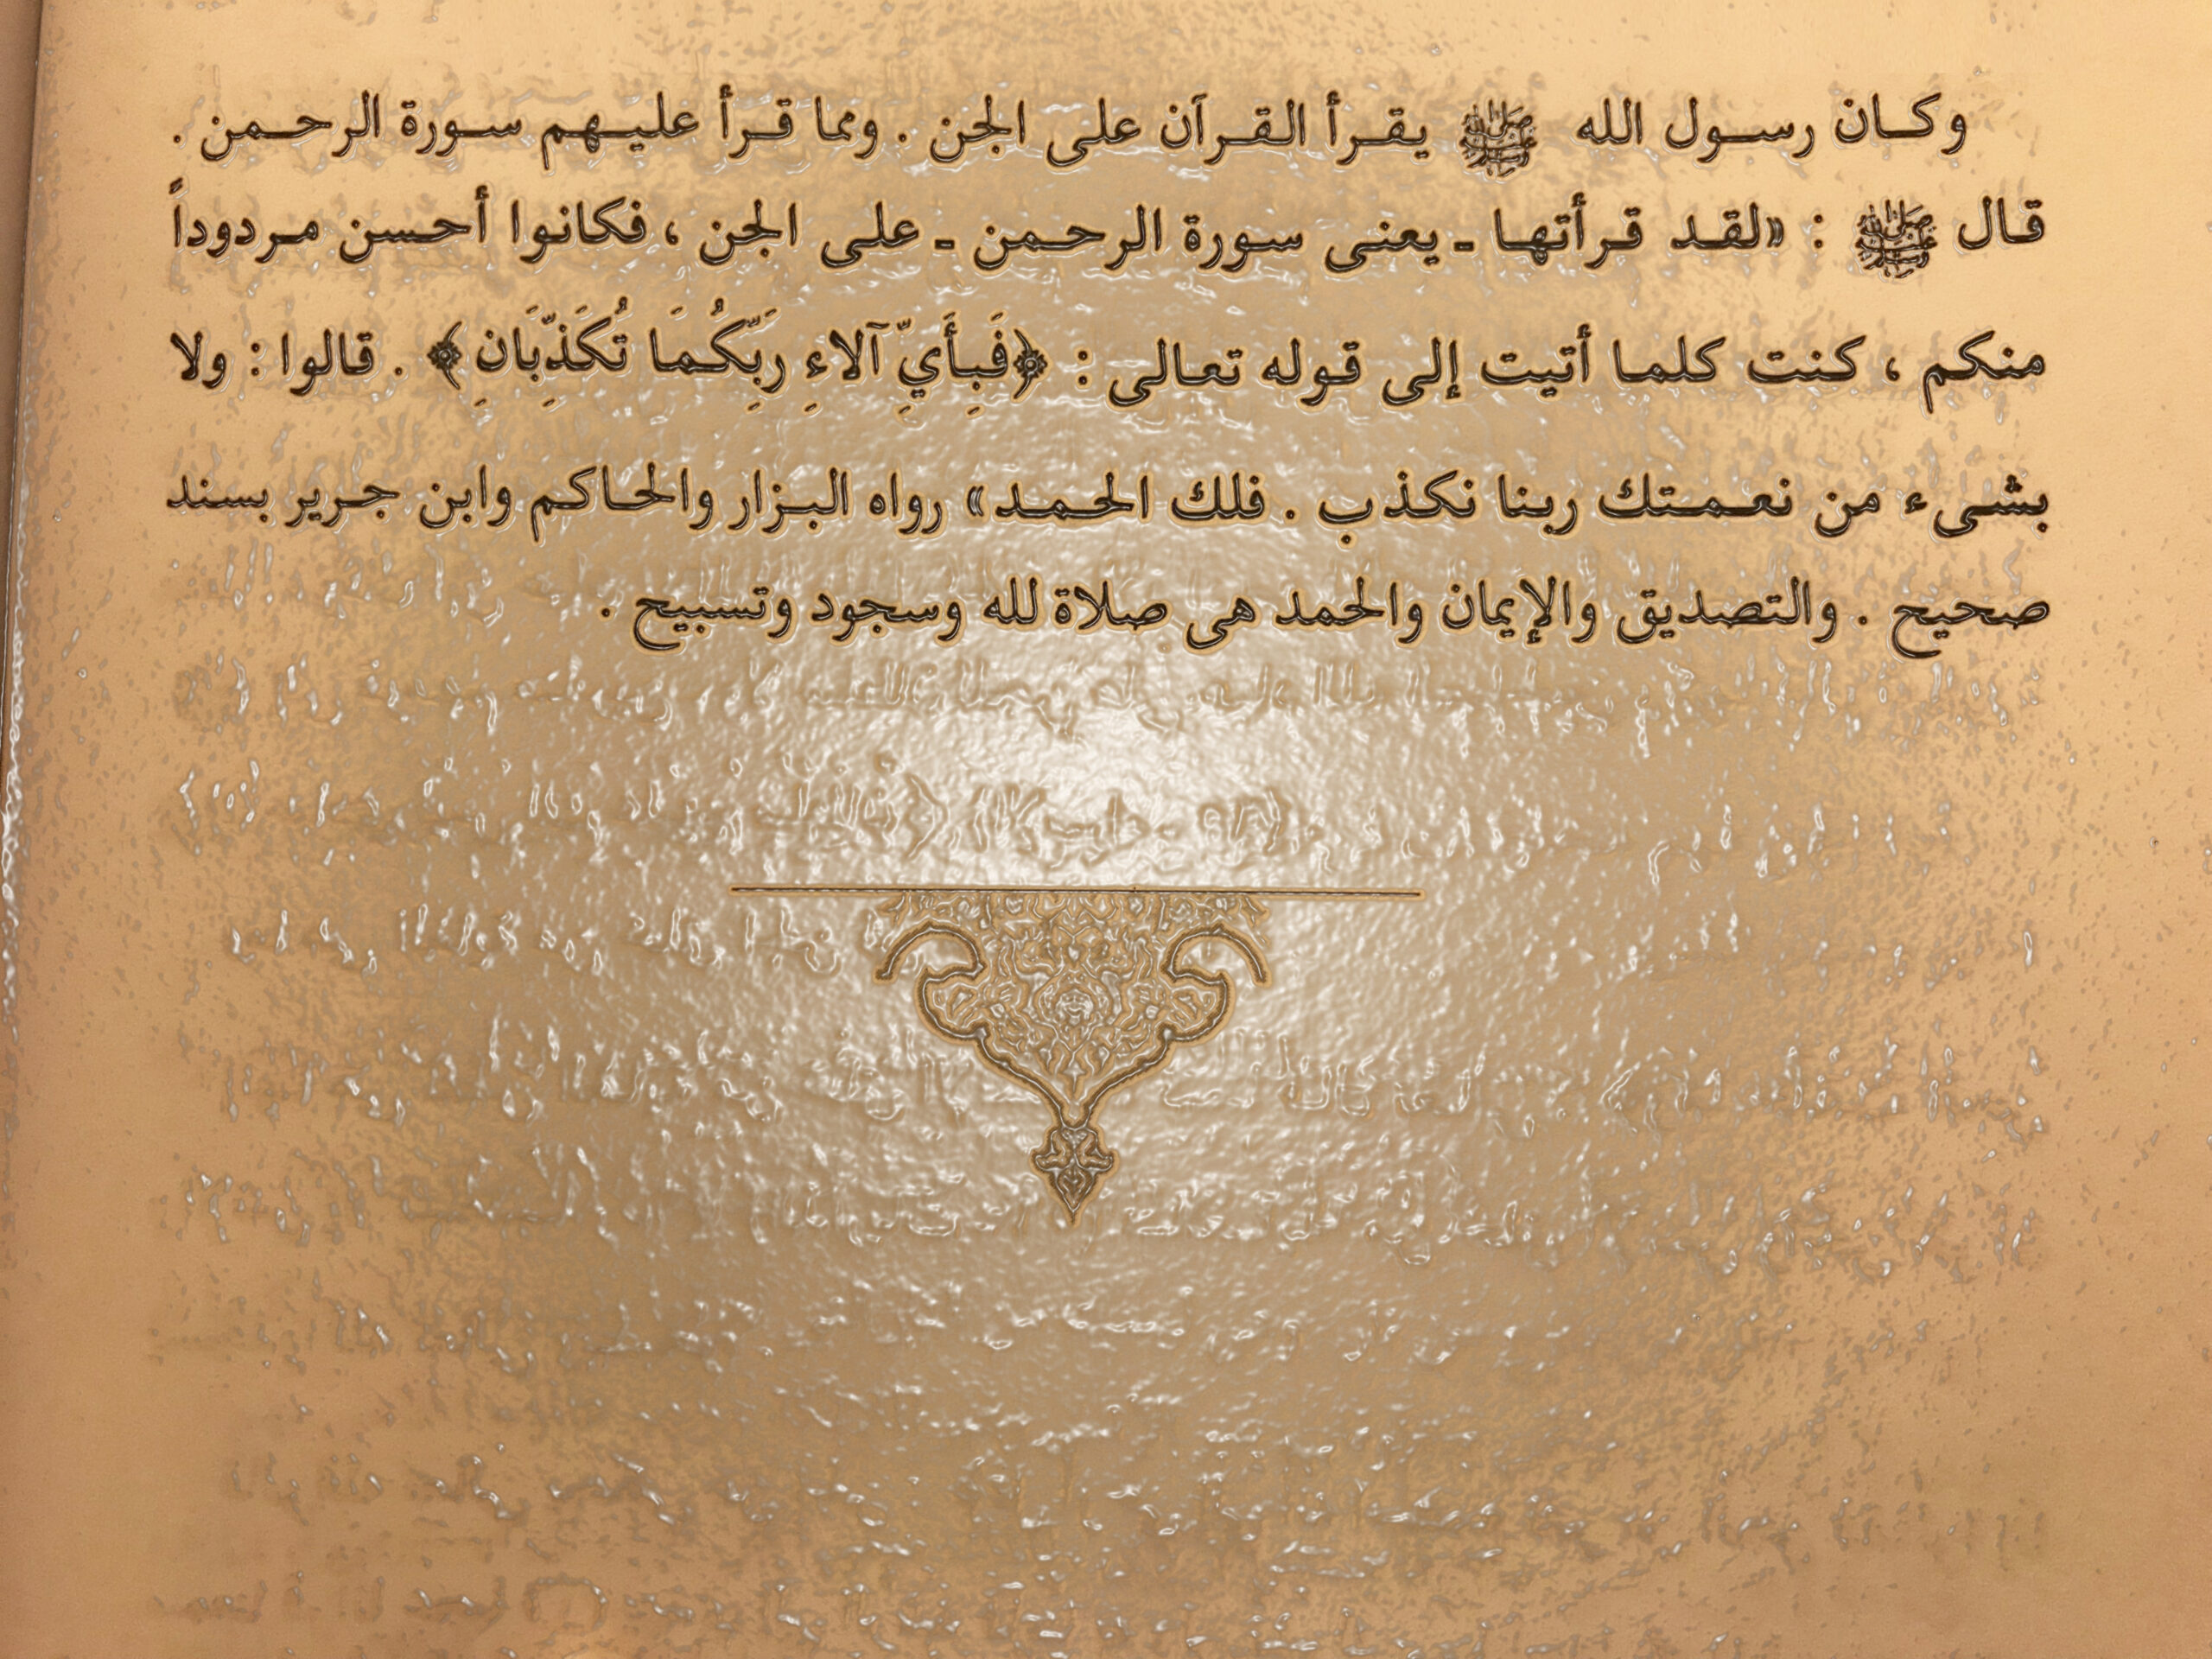 وكان رسول الله ﷺ يقرأ القرآن على الجن . ومما قرأ عليهم سورة الرحمن .
قال ﷺ : «لقد قرأتها - يعنى سورة الرحمن - على الجن ، فكانوا أحسن مردوداً
منكم ، كنت كلما أتيت إلى قوله تعالى : ﴿فَبِأَيِّ آلاءِ رَبِّكُمَا تُكَذِّبَانِ﴾ . قالوا : ولا
بشىء من نعمتك ربنا نكذب . فلك الحمد» رواه البزار والحاكم وابن جرير بسند
صحيح . والتصديق والإيمان والحمد هى صلاة لله وسجود وتسبيح .